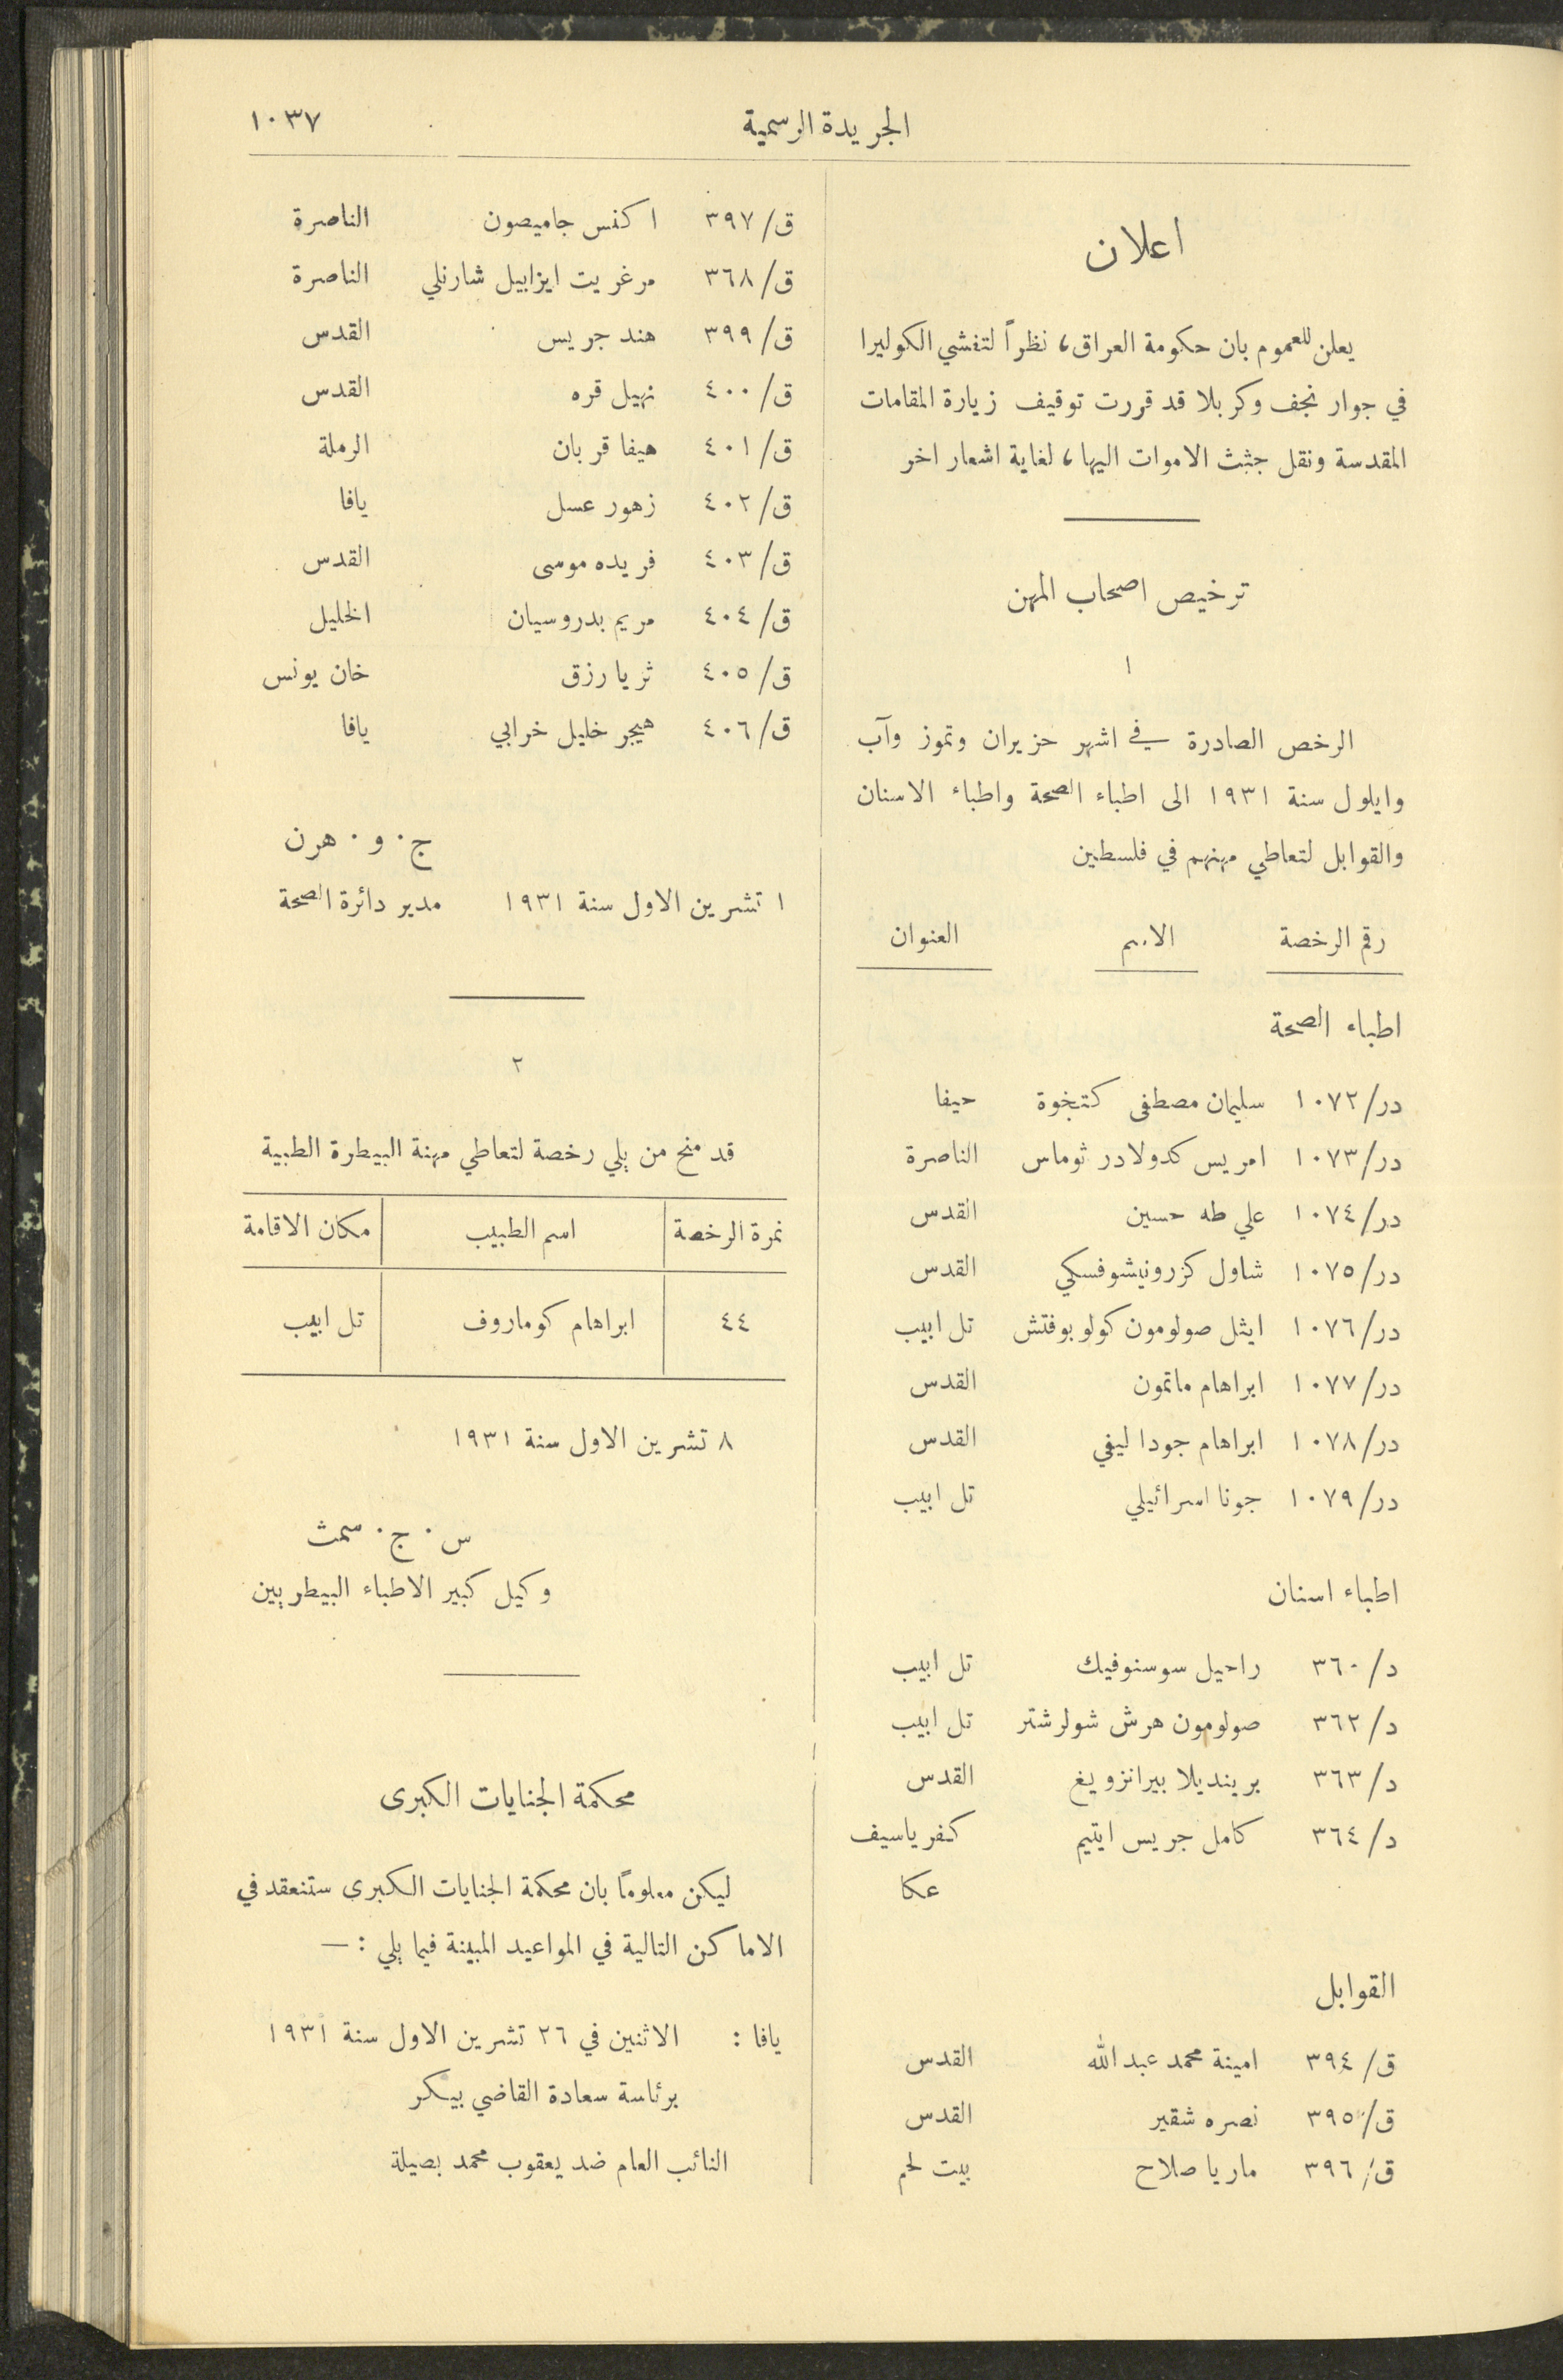 الجريدة الرسمية ١٠٣٧
اعلان
يعلن للعموم بان حكومة العراق، نظراً لتفشي الكوليرا
في جوار نجف وكربلا قد قررت توقيف زيارة المقامات
المقدسة ونقل جثث الاموات اليها، لغاية اشعار اخر
ترخيص اصحاب المهن
١
الرخص الصادرة في اشهر حزيران وتموز وآب
وايلول سنة ١٩٣١ الى اطباء الصحة واطباء الاسنان
والقوابل لتعاطي مهنهم في فلسطين
رقم الرخصة الاسم العنوان
اطباء الصحة
در/١٠٧٢ سليمان مصطفى كتخوة حيفا
در/١٠٧٣ امريس كدولادر ثوماس الناصرة
در/١٠٧٤ علي طه حسين القدس
در/١٠٧٥ شاول كزرونيشوفسكي القدس
در/١٠٧٦ ايثل صولومون كولوبوفتش تل ابيب
در/١٠٧٧ ابراهام ماتمون القدس
در/١٠٧٨ ابراهام جودا ليفي القدس
در/١٠٧٩ جونا اسرائيلي تل ابيب
اطباء اسنان
د/٣٦٠ راحيل سوسنوفيك تل ابيب
د/٣٦٢ صولومون هرش شولرشتر تل ابيب
د/٣٦٣ برينديلا بيرانزويغ القدس
د/٣٦٤ كامل جريس ايتيم كفر ياسيف
عكا
القوابل
ق/٣٩٤ امينة محمد عبدالله القدس
ق/٣٩٥ نصره شقير القدس
ق/٣٩٦ ماريا صلاح بيت لحم
ق/٣٩٧ اكنس جاميصون الناصرة
ق/٣٦٨ مرغريت ايزابيل شارنلي الناصرة
ق/٣٩٩ هند جريس القدس
ق/٤٠٠ نهيل قره القدس
ق/٤٠١ هيفا قربان الرملة
ق/٤٠٢ زهور عسل يافا
ق/٤٠٣ فريده موسى القدس
ق/٤٠٤ مريم بدروسيان الخليل
ق/٤٠٥ ثريا رزق خان يونس
ق/٤٠٦ هيجر خليل خرابي يافا
ج. و. هرن
١ تشرين الاول سنة ١٩٣١ مدير دائرة الصحة
٢
قد منح من يلي رخصة لتعاطي مهنة البيطرة الطبية
نمرة الرخصة اسم الطبيب مكان الاقامة
٤٤ ابراهام كوماروف تل ابيب
٨ تشرين الاول سنة ١٩٣١
س. ج. سمث
وكيل كبير الاطباء البيطريين
محكمة الجنايات الكبرى
ليكن معلوماً بان محكمة الجنايات الكبرى ستنعقد في
الاماكن التالية في المواعيد المبينة فيما يلي :—
يافا : الاثنين في ٢٦ تشرين الاول سنة ١٩٣١
برئاسة سعادة القاضي بيكر
النائب العام ضد يعقوب محمد بصيلة